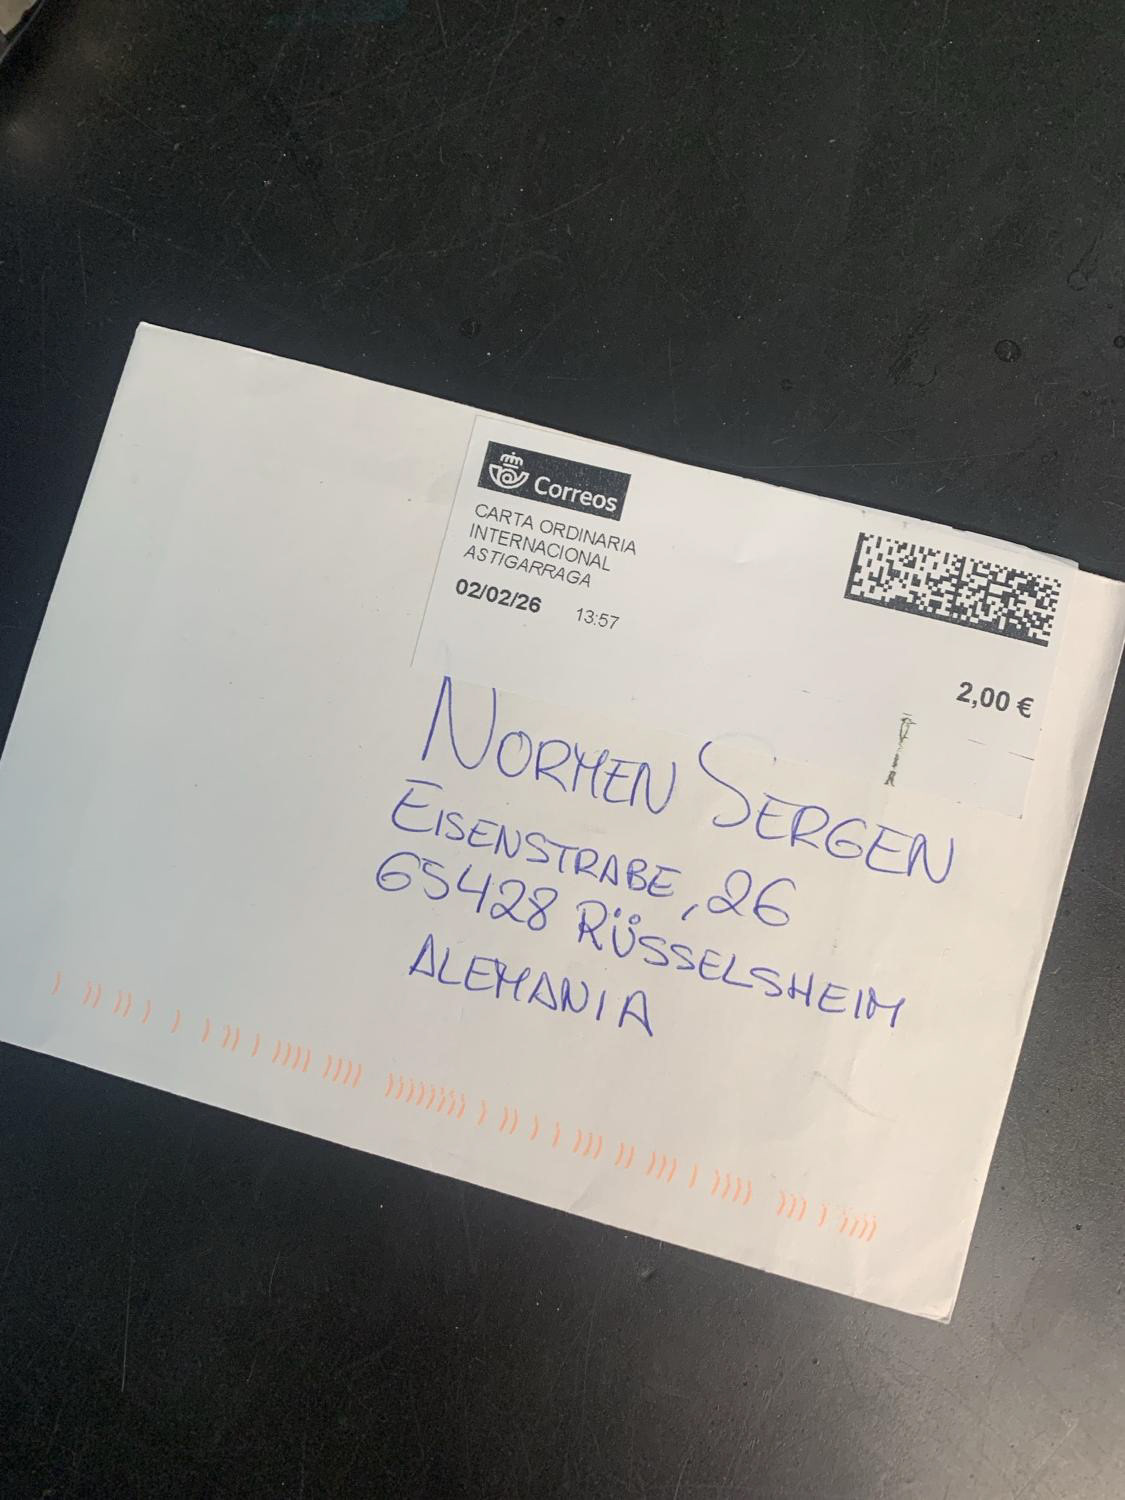 Correos
CARTA ORDINARIA
INTERNACIONAL
ASTIGARRAGA
02/02/26 13:57
2,00 €
NORMEN SERGEN
EISENSTRABE, 26
65428 RÜSSELSHEIM
ALEMANIA